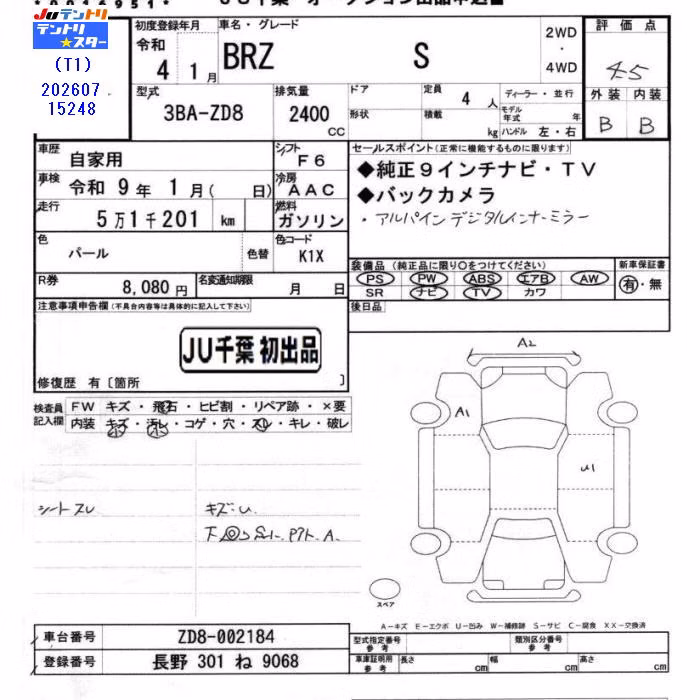 JUテントリ
テントリ★スター
(T1)
202607
15248
初度登録年月
令和
4 1月
車名・グレード
BRZ S
2WD
・
4WD
評価点
4.5
外装 内装
B B
型式
3BA-ZD8
排気量
2400
CC
ドア
形状
定員
4 人
積載
kg
ディーラー・並行
モデル年式 年
ハンドル 左・右
車歴
自家用
シフト
F6
車検
令和 9年 1月( 日)
冷房
AAC
走行
5万1千201 km
燃料
ガソリン
色
パール
色替
色コード
K1X
R券
8,080円
名変通知期限
月 日
セールスポイント(正常に機能するものに限ります)
◆純正9インチナビ・TV
◆バックカメラ
・アルパインデジタルインナーミラー
装備品 (純正品に限り○をつけてください)
PS PW ABS エアB AW
SR ナビ TV カワ
新車保証書
有・無
後日品
注意事項申告欄(不具合内容等は具体的に記入して下さい)
JU千葉 初出品
修復歴 有〔箇所 〕
検査員記入欄
FW キズ・飛石・ヒビ割・リペア跡・×要
内装 キズ・汚レ・コゲ・穴・スレ・キレ・破レ
小 小
シートスレ
キズ・U
A2
A1
U1
スペア
A−キズ E−エクボ U−凹み W−補修跡 S−サビ C−腐食 XX−交換済
車台番号
ZD8-002184
登録番号
長野 301 ね 9068
型式指定番号
参考
類別区分番号
参考
車庫証明用
参考
長さ cm
幅 cm
高さ cm